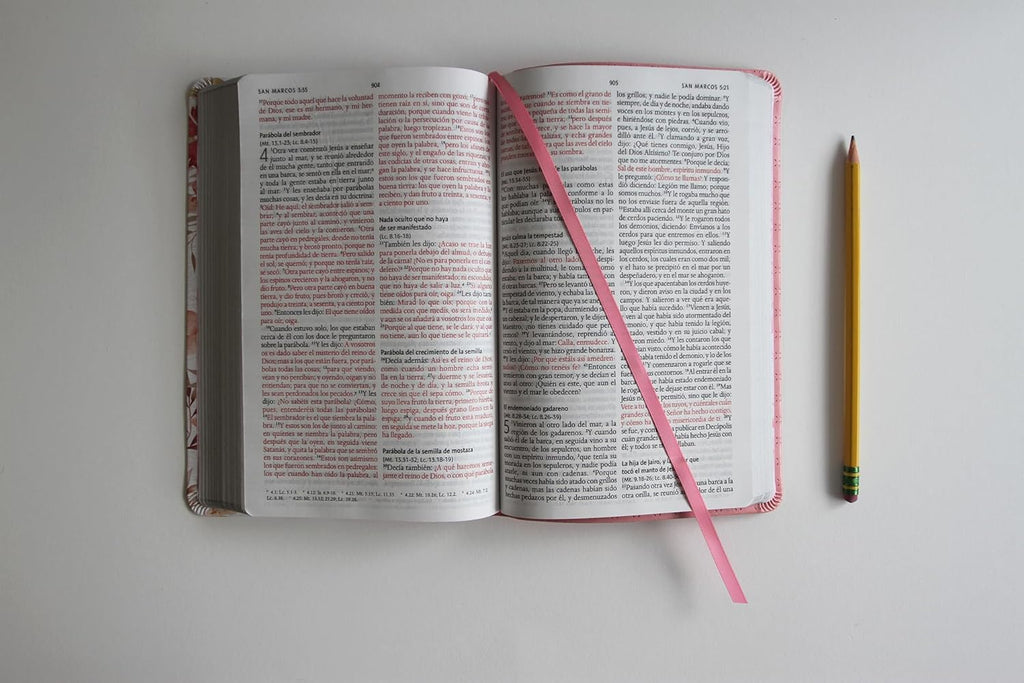 SAN MARCOS 3:35
902
35Porque todo aquel que hace la voluntad
de Dios, ese es mi hermano, y mi her-
mana, y mi madre.
Parábola del sembrador
(Mt. 13.1-23; Lc. 8.4-15)
4 1Otra vez comenzó Jesús a enseñar
junto al mar, y se reunió alrededor
de él mucha gente, tanto que entrando
en una barca, se sentó en ella en el mar;
y toda la gente estaba en tierra junto
al mar. 2Y les enseñaba por parábolas
muchas cosas, y les decía en su doctrina:
3Oíd: He aquí, el sembrador salió a sem-
brar; 4y al sembrar, aconteció que una
parte cayó junto al camino, y vinieron
las aves del cielo y la comieron. 5Otra
parte cayó en pedregales, donde no tenía
mucha tierra; y brotó pronto, porque no
tenía profundidad de tierra. 6Pero salido
el sol, se quemó; y porque no tenía raíz,
se secó. 7Otra parte cayó entre espinos; y
los espinos crecieron y la ahogaron, y no
dio fruto. 8Pero otra parte cayó en buena
tierra, y dio fruto, pues brotó y creció, y
produjo a treinta, a sesenta, y a ciento por
uno. 9Entonces les dijo: El que tiene oídos
para oír, oiga.
10Cuando estuvo solo, los que estaban
cerca de él con los doce le preguntaron
sobre la parábola. 11Y les dijo: A vosotros
os es dado saber el misterio del reino de
Dios; mas a los que están fuera, por pará-
bolas todas las cosas; 12para que viendo,
vean y no perciban; y oyendo, oigan y no
entiendan; para que no se conviertan, y
les sean perdonados los pecados. 13Y les
dijo: ¿No sabéis esta parábola? ¿Cómo,
pues, entenderéis todas las parábolas?
14El sembrador es el que siembra la pala-
bra. 15Y éstos son los de junto al camino:
en quienes se siembra la palabra, pero
después que la oyen, en seguida viene
Satanás, y quita la palabra que se sembró
en sus corazones. 16Estos son asimismo
los que fueron sembrados en pedregales:
los que cuando han oído la palabra, al
momento la reciben con gozo; 17pero no
tienen raíz en sí, sino que son de corta
duración, porque cuando viene la tribu-
lación o la persecución por causa de la
palabra, luego tropiezan. 18Estos son los
que fueron sembrados entre espinos: los
que oyen la palabra, 19pero los afanes de
este siglo, y el engaño de las riquezas, y
las codicias de otras cosas, entran y aho-
gan la palabra, y se hace infructuosa. 20Y
éstos son los que fueron sembrados en
buena tierra: los que oyen la palabra y la
reciben, y dan fruto a treinta, a sesenta, y
a ciento por uno.
Nada oculto que no haya
de ser manifestado
(Lc. 8.16-18)
21También les dijo: ¿Acaso se trae la luz
para ponerla debajo del almud, o debajo
de la cama? ¿No es para ponerla en el can-
delero? 22Porque no hay nada oculto que
no haya de ser manifestado; ni escondido,
que no haya de salir a luz. 23Si alguno
tiene oídos para oír, oiga. 24Les dijo tam-
bién: Mirad lo que oís; porque con la
medida con que medís, os será medido,
y aun se os añadirá a vosotros los que oís.
25Porque al que tiene, se le dará; y al que
no tiene, aun lo que tiene se le quitará.
Parábola del crecimiento de la semilla
26Decía además: Así es el reino de Dios,
como cuando un hombre echa semi-
lla en la tierra; 27y duerme y se levanta,
de noche y de día, y la semilla brota y
crece sin que él sepa cómo. 28Porque de
suyo lleva fruto la tierra, primero hierba,
luego espiga, después grano lleno en la
espiga; 29y cuando el fruto está maduro,
en seguida se mete la hoz, porque la siega
ha llegado.
Parábola de la semilla de mostaza
(Mt. 13.31-32; Lc. 13.18-19)
30Decía también: ¿A qué haremos seme-
jante el reino de Dios, o con qué parábola
905
SAN MARCOS 5:21
31Es como el grano de
cuando se siembra en tie-
32pero después
crece, y se hace la mayor
echa grandes
que las aves del cielo
su sombra.
las parábolas
(Mt. 13.34-35)
33Con muchas como estas
les hablaba la conforme a lo
que podían oír. 34Y sin parábolas no les
hablaba; aunque a sus en par-
ticular les declaraba
Jesús calma la tempestad
(Mt. 8.23-27; Lc. 8.22-25)
35Aquel día, cuando llegó la noche, les
dijo: Pasemos al otro lado. 36Y despi-
diendo a la multitud, le tomaron como
estaba, en la barca; y había también con
él otras barcas. 37Pero se levantó una
tempestad de viento, y echaba las olas
en la barca, de tal manera que ya se ane-
gaba. 38Y él estaba en la popa, durmiendo sobre
un cabezal; y le despertaron, y le dijeron:
Maestro, ¿no tienes cuidado que pere-
cemos? 39Y levantándose, reprendió al
viento, y dijo al mar: Calla, enmudece. Y
cesó el viento, y se hizo grande bonanza.
40Y les dijo: ¿Por qué estáis así amedren-
tados? ¿Cómo no tenéis fe? 41Entonces
temieron con gran temor, y se decían el
uno al otro: ¿Quién es este, que aun el
viento y el mar le obedecen?
El endemoniado gadareno
(Mt. 8.28-34; Lc. 8.26-39)
5 1Vinieron al otro lado del mar, a la
región de los gadarenos. 2Y cuando
salió él de la barca, en seguida vino a su
encuentro, de los sepulcros, un hombre
con un espíritu inmundo, 3que tenía su
morada en los sepulcros, y nadie podía
atarle, ni aun con cadenas. 4Porque
muchas veces había sido atado con grillos
y cadenas, mas las cadenas habían sido
hechas pedazos por él, y desmenuzados
los grillos; y nadie le podía dominar. 5Y
siempre, de día y de noche, andaba dando
voces en los montes y en los sepulcros,
e hiriéndose con piedras. 6Cuando vio,
pues, a Jesús de lejos, corrió, y se arro-
dilló ante él. 7Y clamando a gran voz,
dijo: ¿Qué tienes conmigo, Jesús, Hijo
del Dios Altísimo? Te conjuro por Dios
que no me atormentes. 8Porque le decía:
Sal de este hombre, espíritu inmundo. 9Y
le preguntó: ¿Cómo te llamas? Y respon-
dió diciendo: Legión me llamo; porque
somos muchos. 10Y le rogaba mucho que
no los enviase fuera de aquella región.
11Estaba allí cerca del monte un gran hato
de cerdos paciendo. 12Y le rogaron todos
los demonios, diciendo: Envíanos a los
cerdos para que entremos en ellos. 13Y
luego Jesús les dio permiso. Y saliendo
aquellos espíritus inmundos, entraron en
los cerdos, los cuales eran como dos mil;
y el hato se precipitó en el mar por un
despeñadero, y en el mar se ahogaron.
14Y los que apacentaban los cerdos huye-
ron, y dieron aviso en la ciudad y en los
campos. Y salieron a ver qué era aque-
llo que había sucedido. 15Vienen a Jesús,
y ven al que había sido atormentado del
demonio, y que había tenido la legión,
sentado, vestido y en su juicio cabal; y
tuvieron miedo. 16Y les contaron los que
habían visto, cómo le había acontecido
al que había tenido el demonio, y lo de los
cerdos. 17Y comenzaron a rogarle que se
fuera de sus contornos. 18Al entrar él en la
barca, el que había estado endemoniado
le rogaba que le dejase estar con él. 19Mas
Jesús no se lo permitió, sino que le dijo:
Vete a tu casa, a los tuyos, y cuéntales cuán
grandes cosas el Señor ha hecho contigo,
y cómo ha tenido misericordia de ti. 20Y
se fue, y comenzó a publicar en Decápolis
cuán grandes cosas había hecho Jesús con
él; y todos se maravillaban.
La hija de Jairo, y la mujer que
tocó el manto de Jesús
(Mt. 9.18-26; Lc. 8.40-56)
21Pasando otra vez Jesús en una barca a la
otra orilla, se reunió alrededor de él una